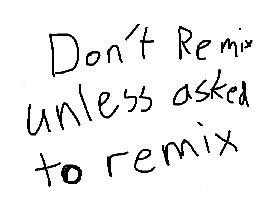 Don't Remix
unless asked
to remix